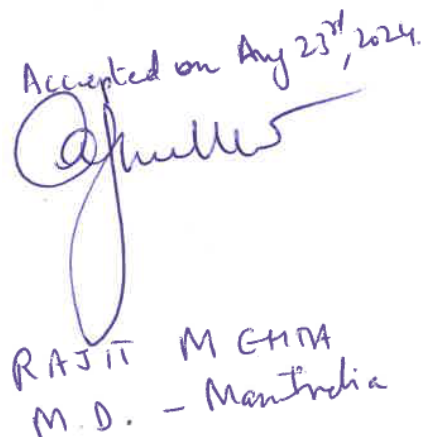 Accepted on Aug 23rd, 2024.
RAJIT MEHTA
M.D. -